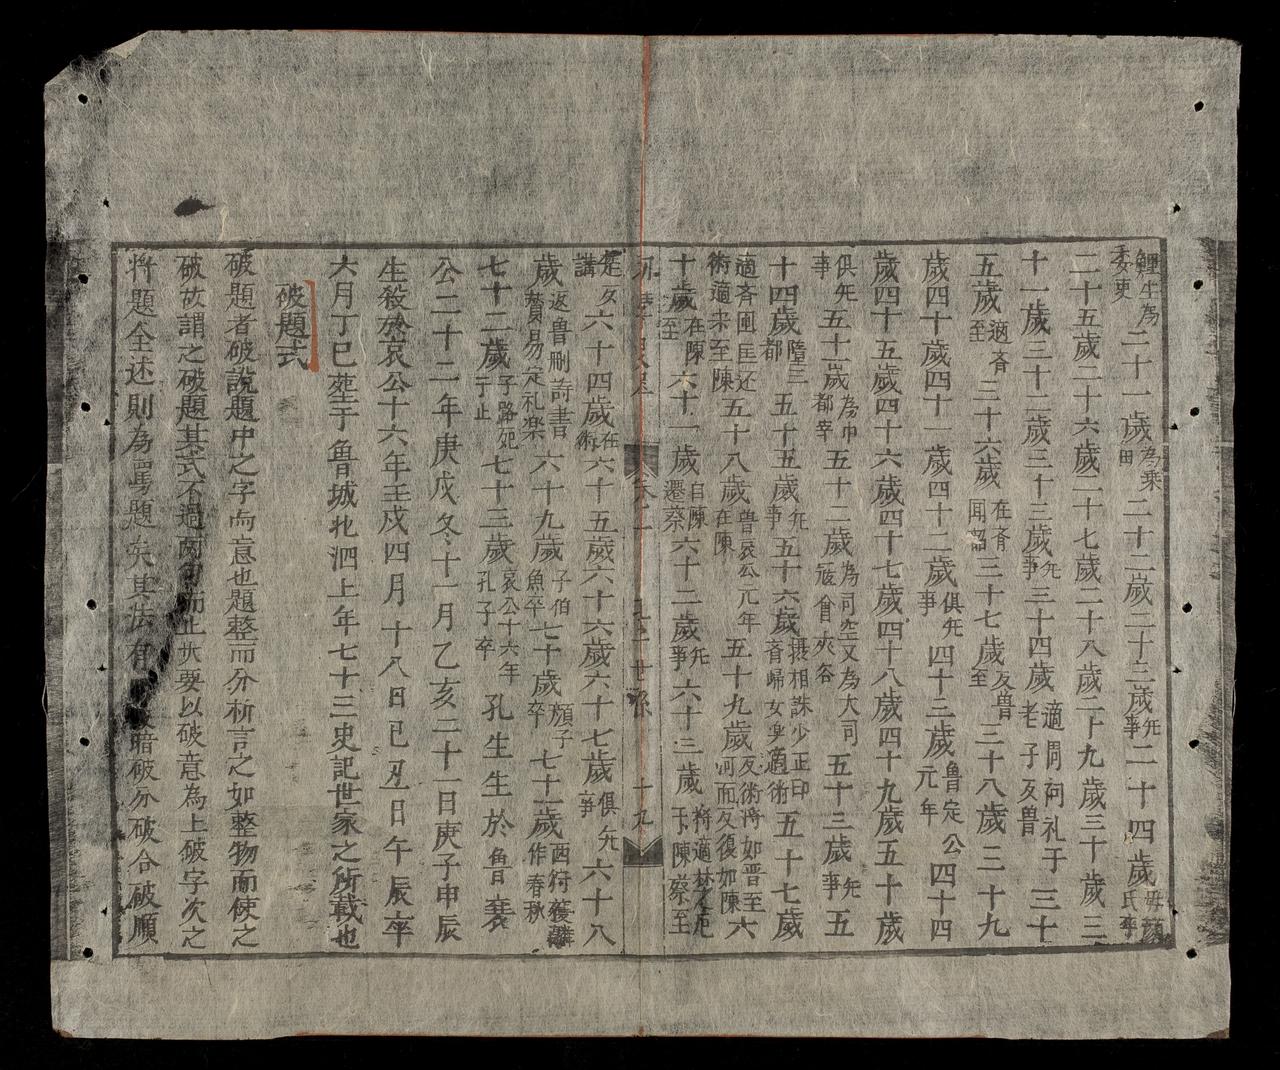 鯉生為委吏二十一歲為乘田二十二歲二十三歲旡事二十四歲毋顏氏卒
二十五歲二十六歲二十七歲二十八歲二十九歲三十歲三
十一歲三十二歲三十三歲旡事三十四歲適周问礼于老子反魯三十
五歲適斉至三十六歲在斉聞韶三十七歲反魯至三十八歲三十九
歲四十歲四十一歲四十二歲俱旡事四十三歲魯定公元年四十四
歲四十五歲四十六歲四十七歲四十八歲四十九歲五十歲
俱旡事五十一歲為巾都宰五十二歲為司空又為大司寇會夾谷五十三歲旡事五
十四歲隳三都五十五歲旡事五十六歲摂相誅少正卯斉歸女樂適術五十七歲
適斉囲匡还術適宋至陳五十八歲魯哀公元年在陳五十九歲反術將如晋至河而反復如陳六
十歲在陳至六十一歲自陳遷蔡六十二歲旡事六十三歲將適楚至厄于陳蔡至
十九
是反講六十四歲在術六十五歲六十六歲六十七歲俱旡事六十八
歲返魯刪詩書賛易定礼楽六十九歲子伯魚卒七十歲顏子卒七十一歲西狩獲麟作春秋
七十二歲子路死于止七十三歲哀公十六年孔子卒孔生生於魯襄
公二十二年庚戌冬十一月乙亥二十一日庚子申辰
生殺於哀公十六年壬戌四月十八日己丑日午辰卒
六月丁巳葬于魯城北泗上年七十三史記世家之所載也
破題式
破題者破說題中之字而意也題整而分析言之如整物而使之
破故謂之破題其式不過两句而止大要以破意為上破字次之
將題全述則為罵題矣其法有破暗破分破合破順